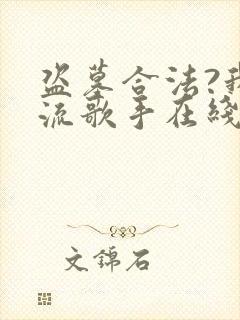 盗墓合法?我
流歌手在线
文锦石